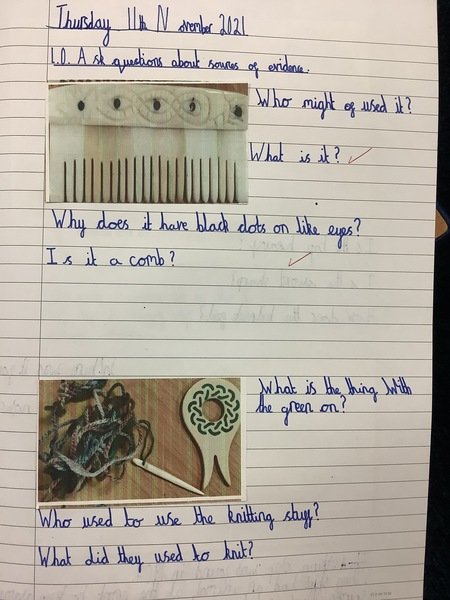 Thursday 11th November 2021
L.O. Ask questions about sources of evidence.
Who might of used it?
What is it?
Why does it have black dots on like eyes?
Is it a comb?
What is the thing with
the green on?
Who used to use the knitting stuff?
What did they used to knit?